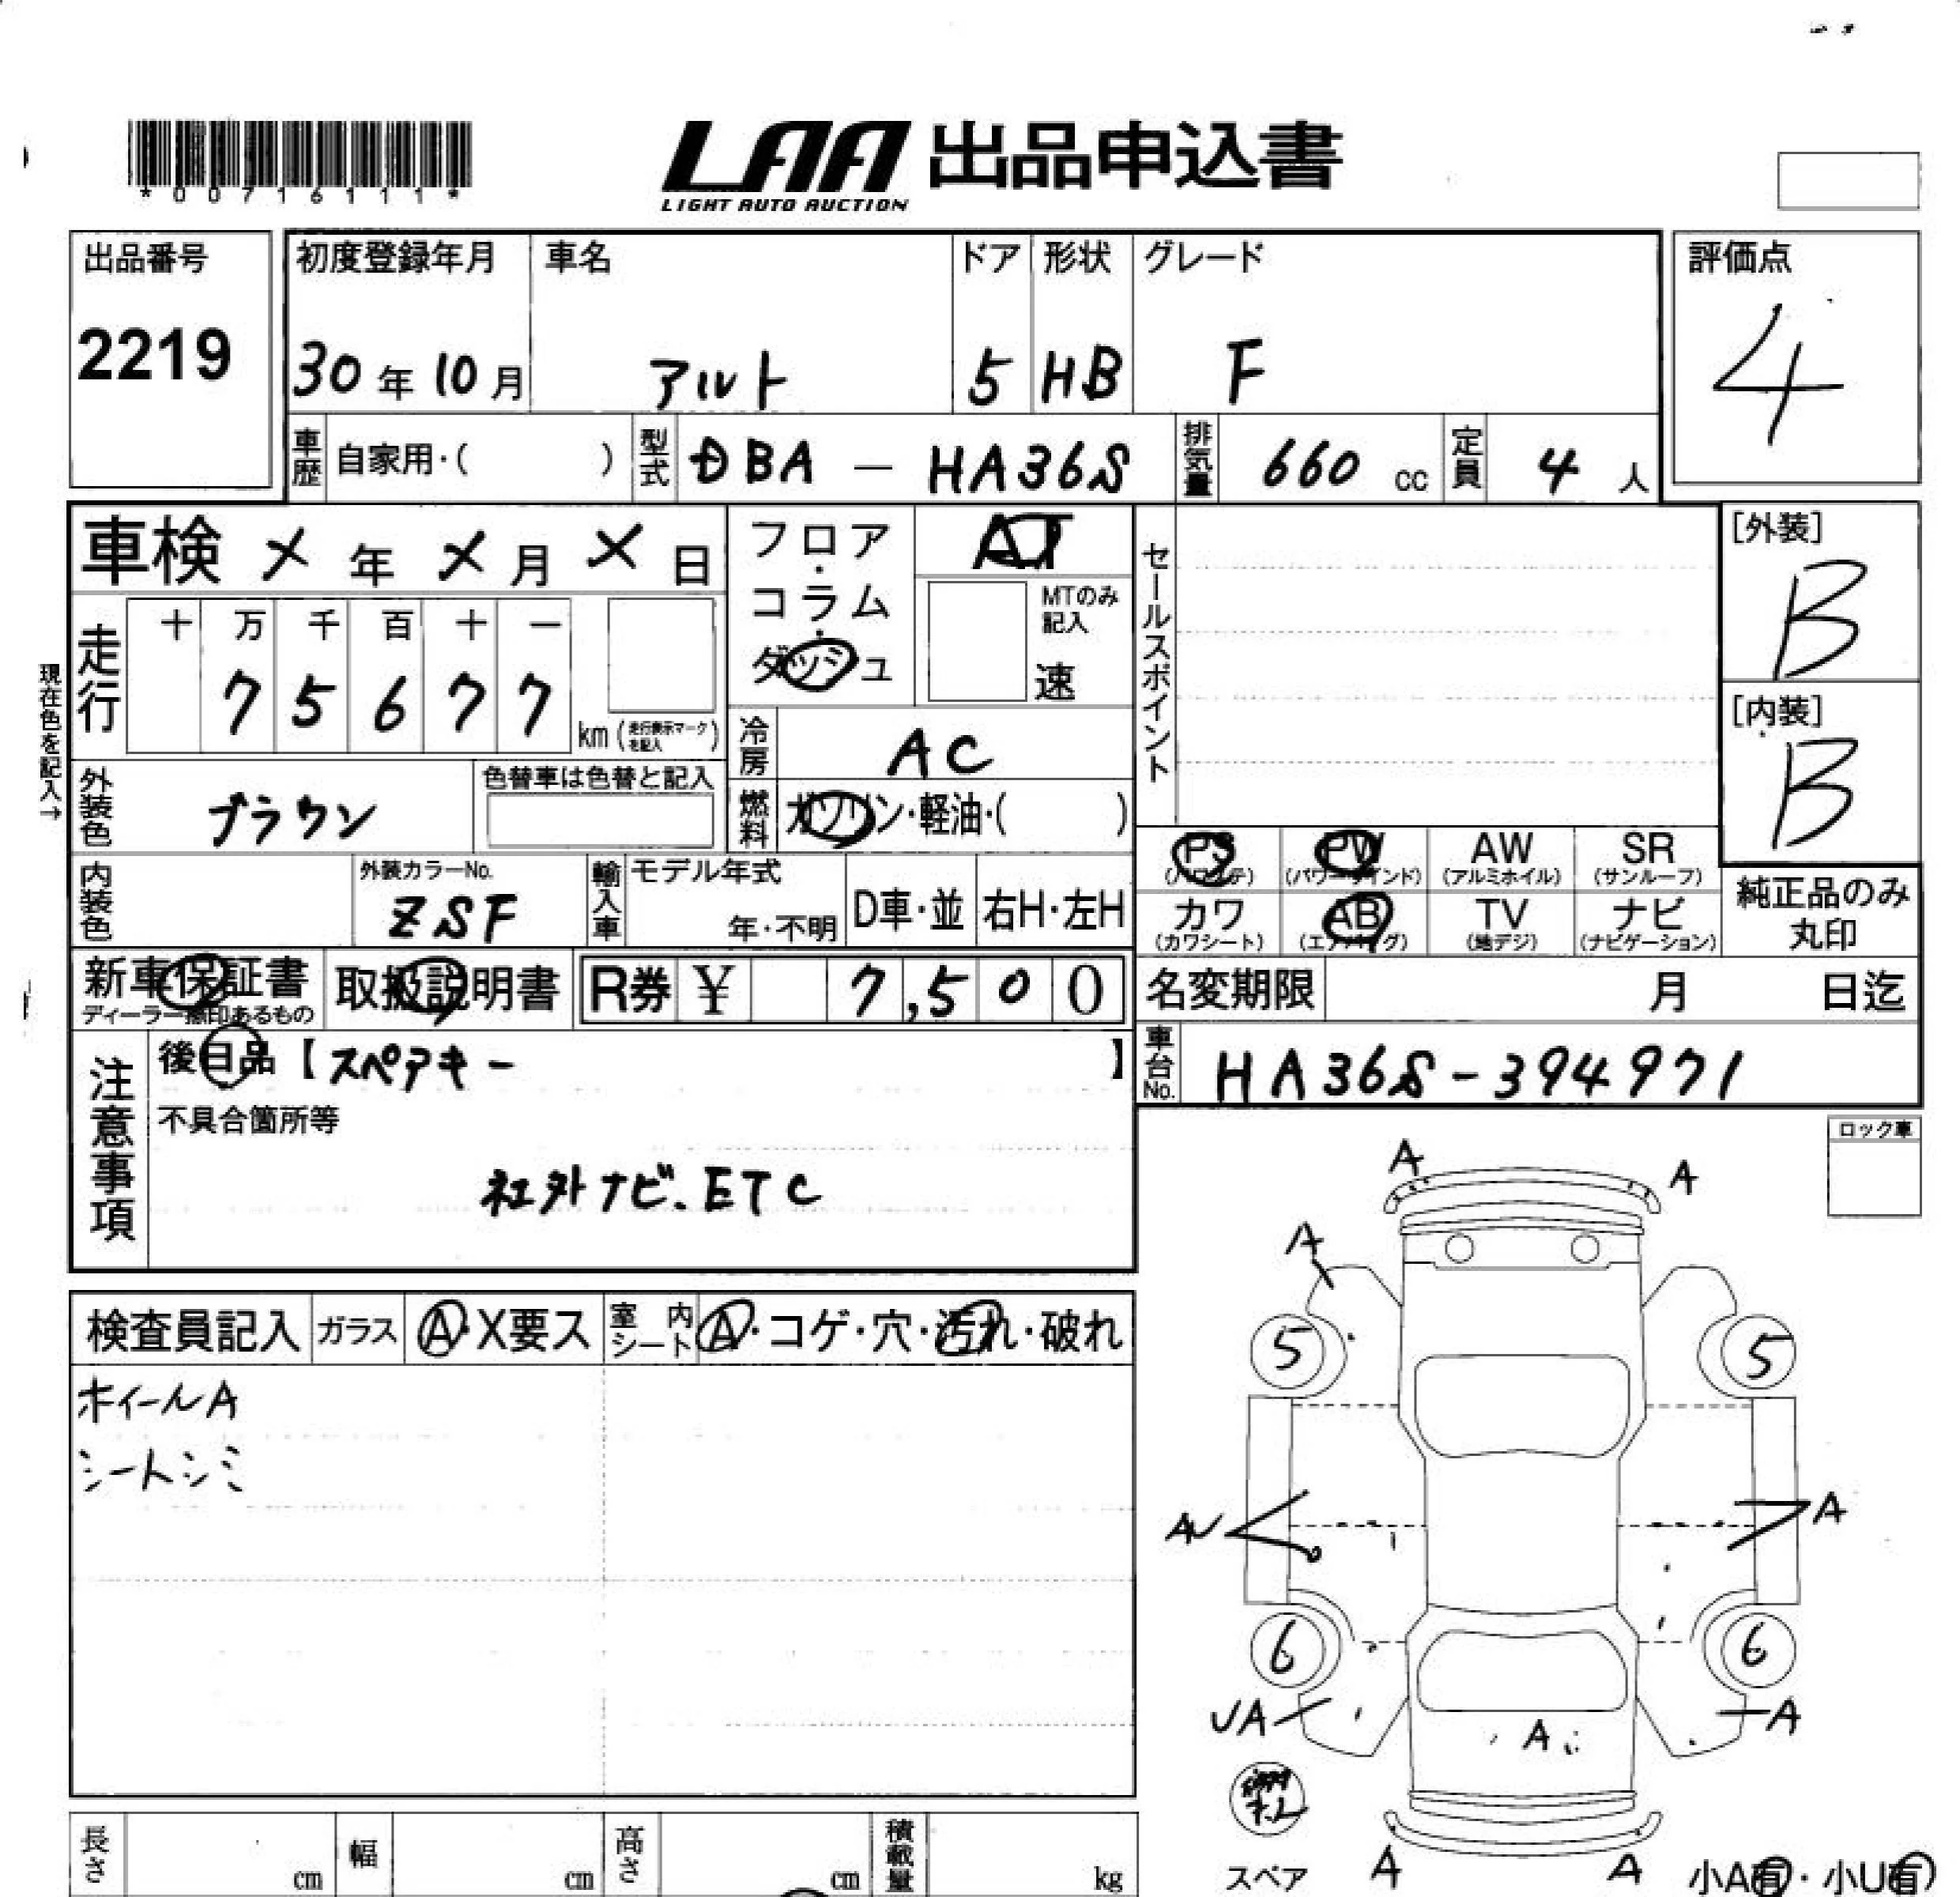 *00716111*
LAA 出品申込書
LIGHT AUTO AUCTION
出品番号
2219
初度登録年月
30年10月
車名
アルト
ドア
5
形状
HB
グレード
F
評価点
4
車歴 自家用・( )
型式 DBA - HA36S
排気量 660 cc
定員 4 人
車検 X 年 X 月 X 日
フロア・コラム・ダッシュ
AT
MTのみ記入
速
セールスポイント
[外装]
B
[内装]
B
現在色を記入→
走行
十 万 千 百 十 一
7 5 6 7 7
km (走行表示マークを記入)
冷房 AC
外装色 ブラウン
色替車は色替と記入
燃料 ガソリン・軽油・( )
PS PW AW SR
(パワステ) (パワーウインド) (アルミホイル) (サンルーフ)
内装色
外装カラーNo.
ZSF
輸入車
モデル年式
年・不明
D車・並
右H・左H
カワ AB TV ナビ
(カワシート) (エアバイグ) (地デジ) (ナビゲーション)
純正品のみ
丸印
新車保証書
ディーラー捺印あるもの
取扱説明書
R券 ¥ 7,500
名変期限 月 日迄
車台No. HA36S-394971
注意事項
後日品【スペアキー 】
不具合箇所等
社外ナビ、ETC
ロック車
検査員記入
ガラス A・X要ス
室内シート A・コゲ・穴・汚れ・破れ
ホイールA
シートシミ
A A
A
5 5
AU A
6 6
UA A
A
スペア
A A
小A有・小U有
長さ cm
幅 cm
高さ cm
積載量 kg